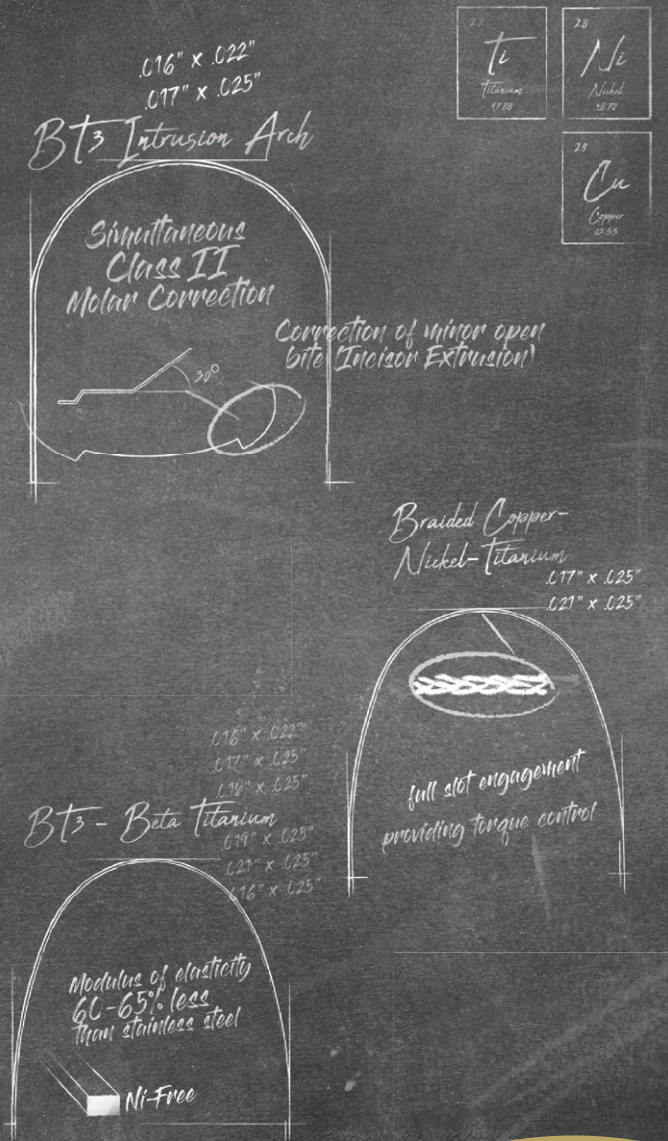 .016" x .022"
.017" x .025"
BT3 Intrusion Arch
Simultaneous
Class II
Molar Correction
Correction of minor open
bite (Incisor Extrusion)
30°
22
Ti
Titanium
47.88
28
Ni
Nickel
58.70
29
Cu
Copper
63.55
Braided Copper-
Nickel-Titanium
.017" x .025"
.021" x .025"
full slot engagement
providing torque control
.016" x .022"
.017" x .025"
.018" x .025"
BT3 - Beta Titanium
.019" x .025"
.021" x .025"
.016" x .025"
Modulus of elasticity
60-65% less
than stainless steel
Ni-Free